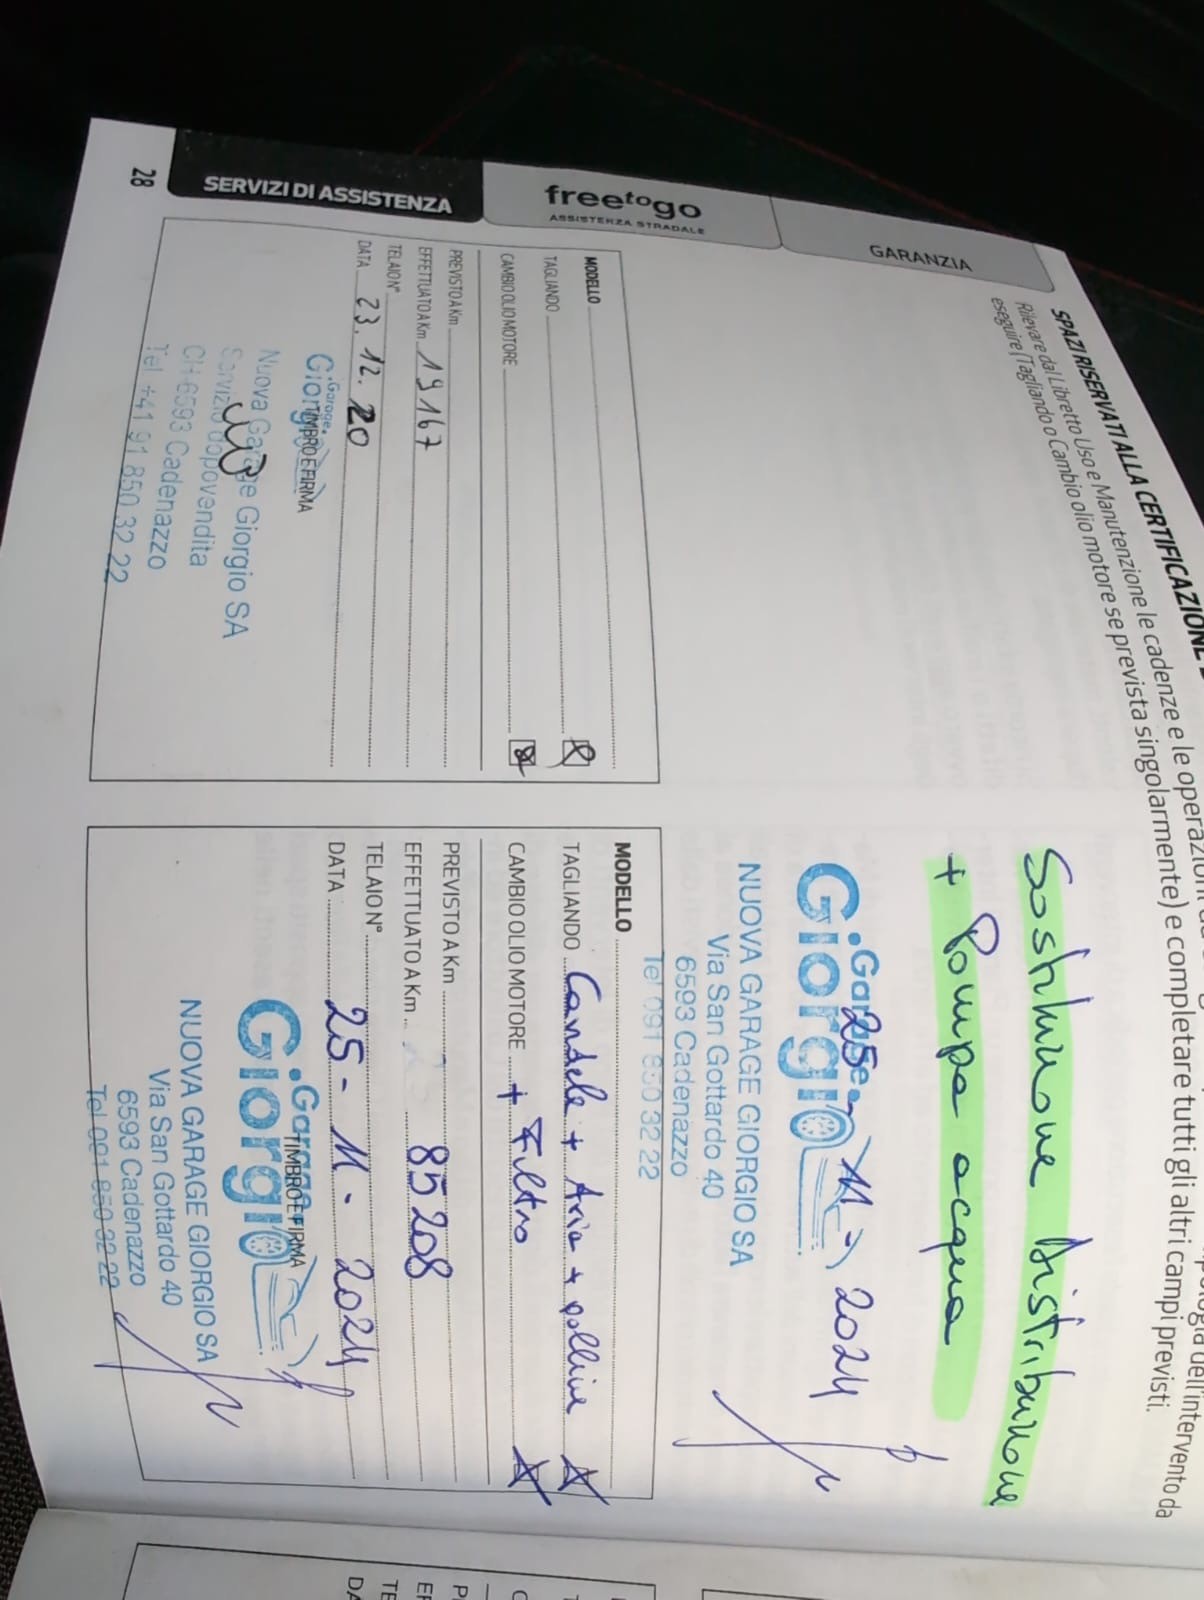 GARANZIA
freetogo
ASSISTENZA STRADALE
SERVIZI DI ASSISTENZA
28
SPAZI RISERVATI ALLA CERTIFICAZIONE
Rilevare dal Libretto Uso e Manutenzione le cadenze e le operazioni dell'intervento da
eseguire (Tagliando o Cambio olio motore se prevista singolarmente) e completare tutti gli altri campi previsti.
Sostituzione distribuzione
+ Pompa acqua
25 - 11 - 2024
Garage
Giorgio
NUOVA GARAGE GIORGIO SA
Via San Gottardo 40
6593 Cadenazzo
Tel 091 850 32 22
MODELLO
TAGLIANDO
CAMBIO OLIO MOTORE
PREVISTO A Km
EFFETTUATO A Km 19167
TELAIO N°
DATA 23.12.20
TIMBRO E FIRMA
Garage
Giorgio
Nuova Garage Giorgio SA
Servizio dopovendita
CH-6593 Cadenazzo
Tel +41 91 850 32 22
MODELLO
TAGLIANDO Candele + Aria + polline
CAMBIO OLIO MOTORE + Filtro
PREVISTO A Km
EFFETTUATO A Km 85208
TELAIO N°
DATA 25 - 11 - 2024
TIMBRO E FIRMA
Garage
Giorgio
NUOVA GARAGE GIORGIO SA
Via San Gottardo 40
6593 Cadenazzo
Tel 091 850 32 22